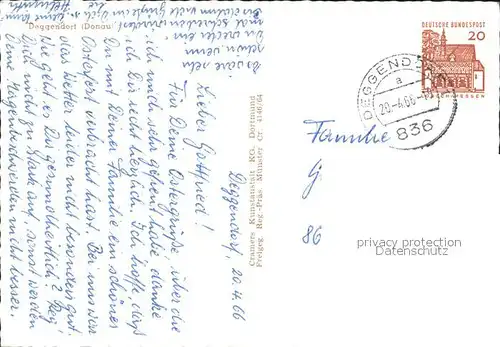 Deggendorf (Donau)
Deggendorf, 20.4.66
Lieber Gottfried!
Für Deine Ostergrüße, über die
ich mich sehr gefreut habe, danke
ich Dir recht herzlich. Ich hoffe, daß
Du mit Deiner Familie ein schönes
Osterfest verbracht hast. Bei uns war
das Wetter leider nicht besonders gut.
Wie geht es Dir gesundheitlich? Reg'
Dich nicht zu stark auf, sonst werden
Deine Magenbeschwerden nicht besser.
Es wäre sehr
schön wenn
Du wieder ein
mal schreiben würdest.
Cramers Kunstanstalt KG. Dortmund
Freigeg. Reg-Präs. Münster Cr. 4146/64
DEUTSCHE BUNDESPOST
20
DEGGENDORF
a
20.-4.66
836
Familie
G
86
privacy protection
watermark